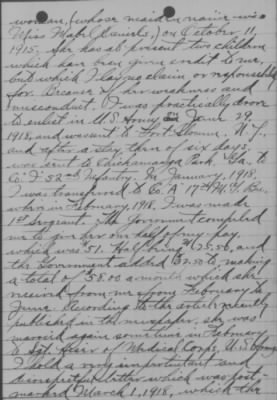 woman, (whose maiden name was
Miss Mabel Daniels,) on October 11,
1915. She has at present two children
which have been given credit to me,
but which I lay no claim or responsibility
for. Because of her weakness and
misconduct, I was practically drove
to enlist in U.S. Army on June 29,
1917, and was sent to Fort Slocum, N.Y.,
and after a stay there of six days,
was sent to Chickamauga Park Ga. to
Co. F 52nd Infantry. In January, 1918,
I was transferred to Co. "A" 17th M. G. Bn.
when in February, 1918, I was made
1st Sergeant. The Government compelled
me to give her one half of my pay
which was $51. Half being $25.50, and
the Government added $32.50 to, making
a total of $58.00 a month which she
received from me from February to
June. According to the article recently
published in the newspaper, she was
married again sometime in February
to Sgt. of Medical Corps, U.S. Army
I hold a very important and
disrespectful letter which was post-
marked March 1, 1918, which the